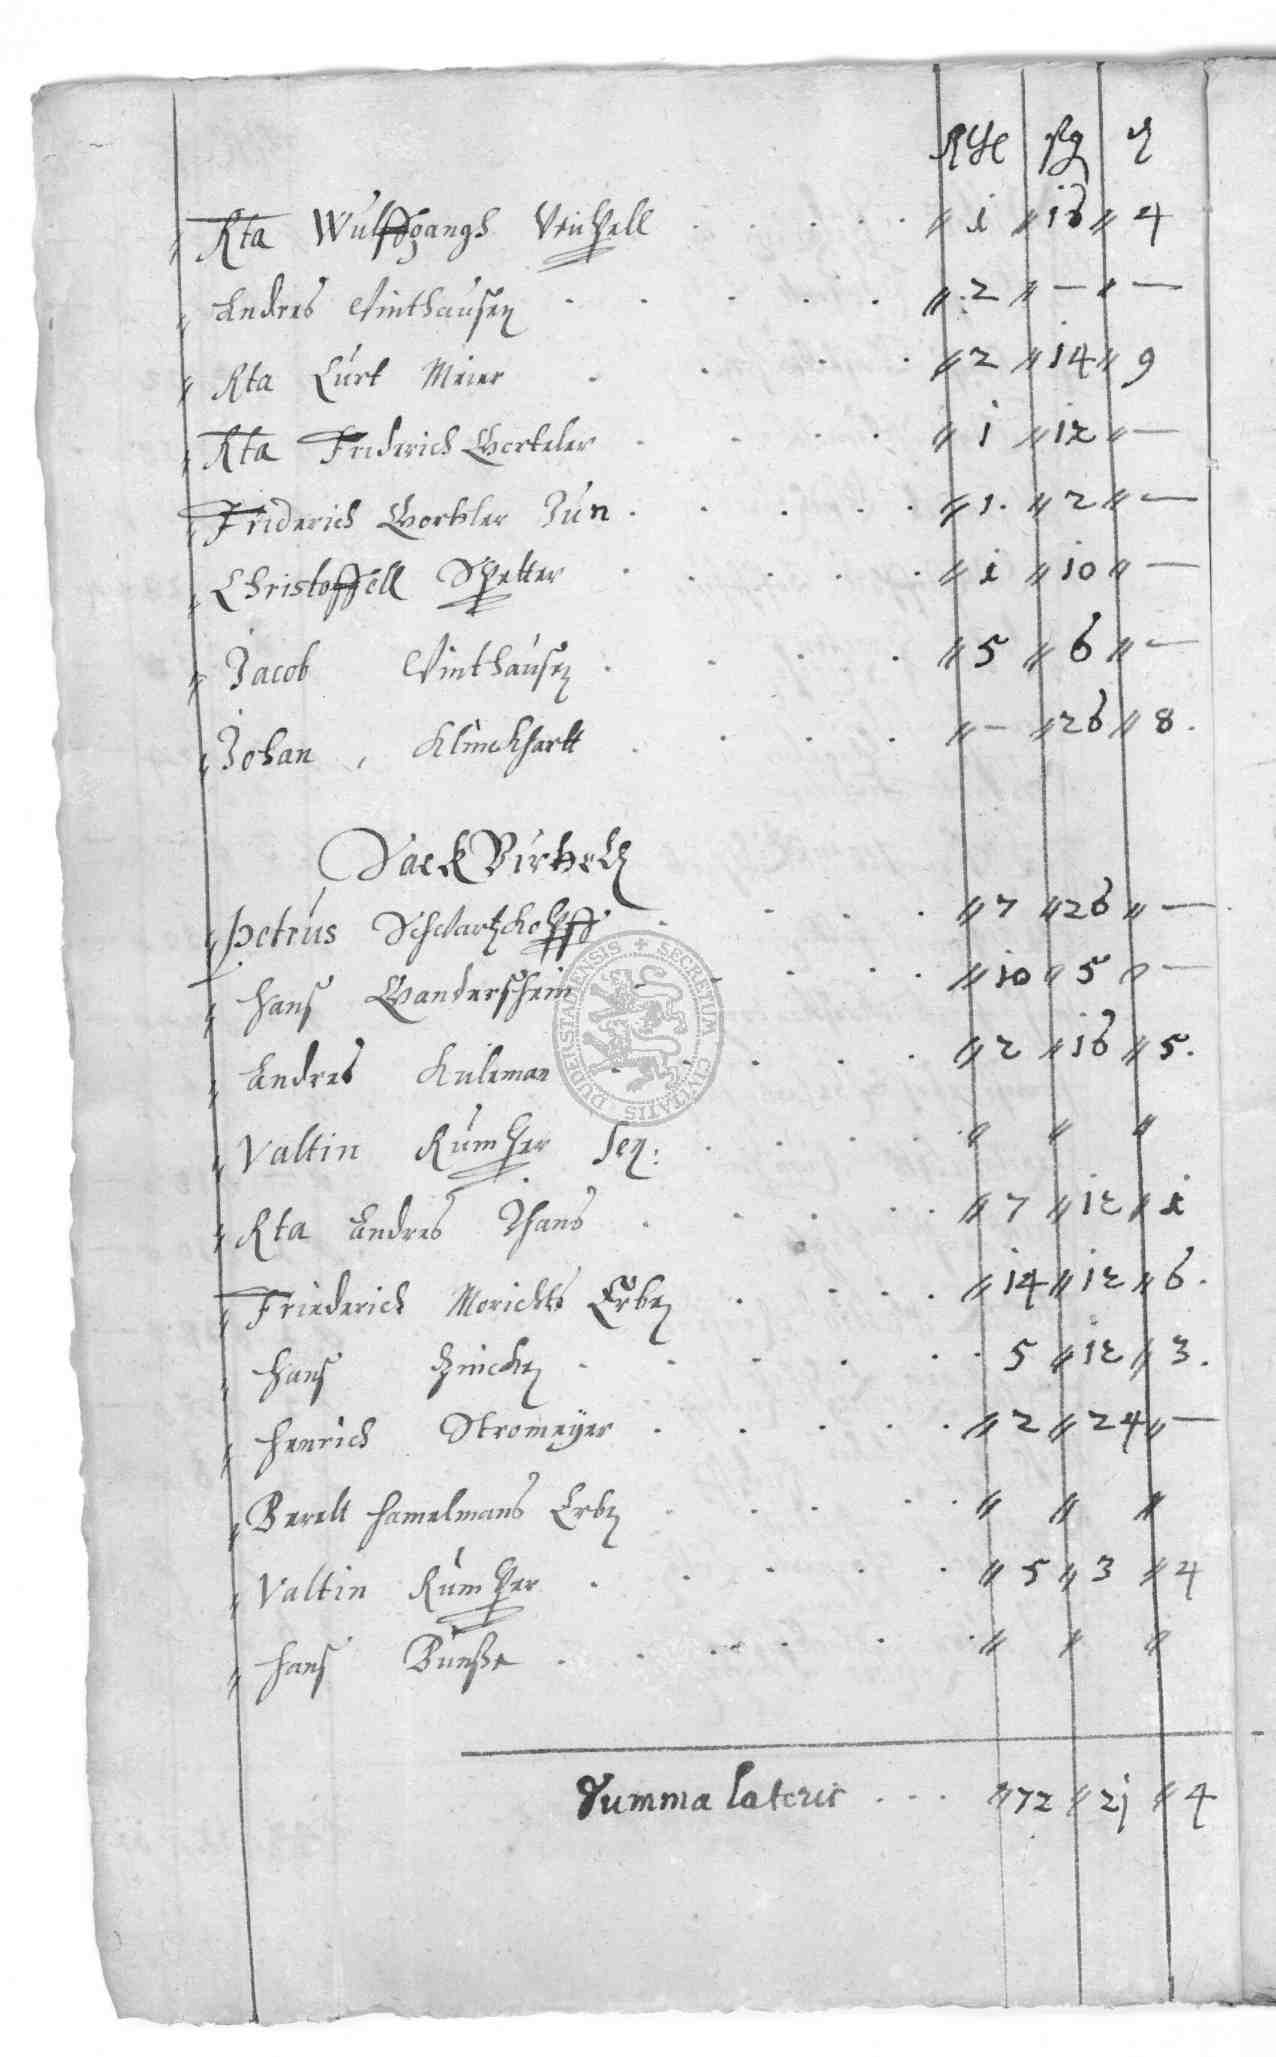 Rthl ßg ₰
" Rta Wulffgangh Vnüzell . . . . . " 1 " 16 " 4
" Andres Vinthausen . . . . . " 2 " — " —
" Rta Curt Meier . . . . " 2 " 14 " 9
" Rta Friderich Worteler . . . . " 1 " 12 " —
" Friderich Wortler Jun . . . . . " 1 . " 2 " —
" Christoffell Spetter . . . . . " 1 " 10 " —
" Jacob Vinthausen . . . . . " 5 " 6 " —
" Johan , Klinckhartt . . . . " — " 26 " 8 .
Sack
" Petrus Schwartzkopff . . . . " 7 " 26 " —
" Hans Wandersheim . . . . " 10 " 5 " —
" Andres Kuleman . . . . " 2 " 16 " 5 .
" Valtin Rumper Sen : . . . . " " "
" Rta Andres Thans . . . . . " 7 " 12 " 1
" Friederich Morichts Erben . . . . " 14 " 12 " 6 .
" Hans Zincken . . . . . . 5 " 12 " 3 .
" Henrich Stromeyer . . . . . " 2 " 24 " —
" Bereltt Hamelmans Erben . . . . . " " "
" Valtin Rumper . . . . . " 5 " 3 " 4
" Hans Bunße . . . . . . " " "
Summa lateris . . . " 72 " 21 " 4
SECRETUM CIVITATIS DUDERSTADENSIS